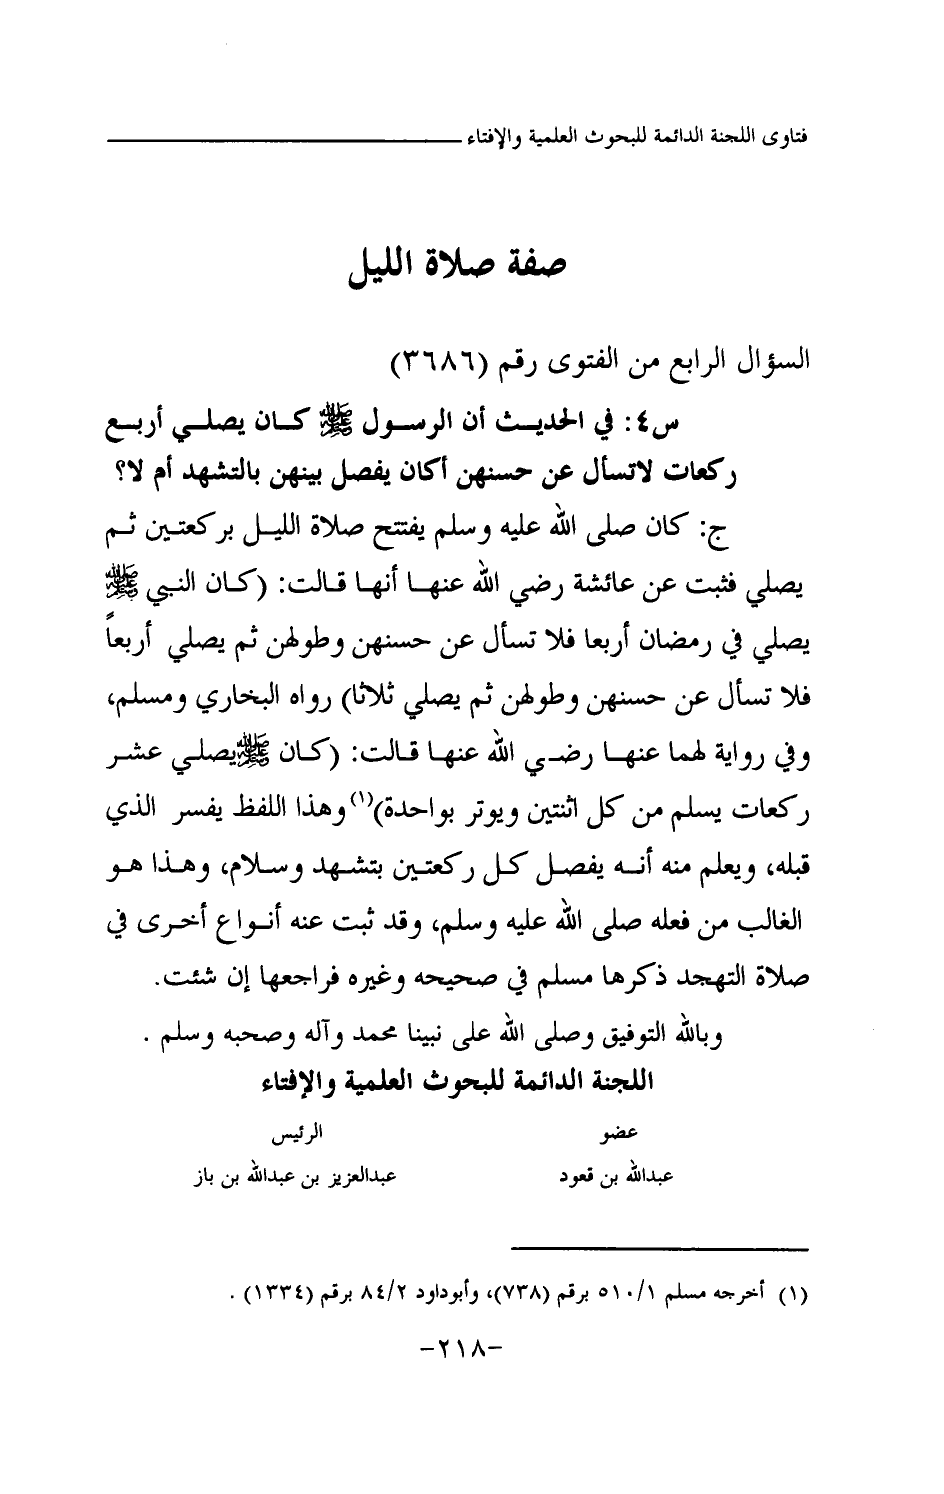 فتاوى اللجنة الدائمة للبحوث العلمية والإفتاء
صفة صلاة الليل
السؤال الرابع من الفتوى رقم (٣٦٨٦)
س٤: في الحديث أن الرسول ﷺ كان يصلي أربع
ركعات لاتسأل عن حسنهن أكان يفصل بينهن بالتشهد أم لا؟
ج: كان صلى الله عليه وسلم يفتتح صلاة الليل بركعتين ثم
يصلي فثبت عن عائشة رضي الله عنها أنها قالت: (كان النبي ﷺ
يصلي في رمضان أربعا فلا تسأل عن حسنهن وطولهن ثم يصلي أربعاً
فلا تسأل عن حسنهن وطولهن ثم يصلي ثلاثا) رواه البخاري ومسلم،
وفي رواية لهما عنها رضي الله عنها قالت: (كان ﷺيصلي عشر
ركعات يسلم من كل اثنتين ويوتر بواحدة)(١) وهذا اللفظ يفسر الذي
قبله، ويعلم منه أنه يفصل كل ركعتين بتشهد وسلام، وهذا هو
الغالب من فعله صلى الله عليه وسلم، وقد ثبت عنه أنواع أخرى في
صلاة التهجد ذكرها مسلم في صحيحه وغيره فراجعها إن شئت.
وبالله التوفيق وصلى الله على نبينا محمد وآله وصحبه وسلم .
اللجنة الدائمة للبحوث العلمية والإفتاء
عضو الرئيس
عبدالله بن قعود عبدالعزيز بن عبدالله بن باز
(١) أخرجه مسلم ٥١٠/١ برقم (٧٣٨)، وأبوداود ٨٤/٢ برقم (١٣٣٤) .
-٢١٨-